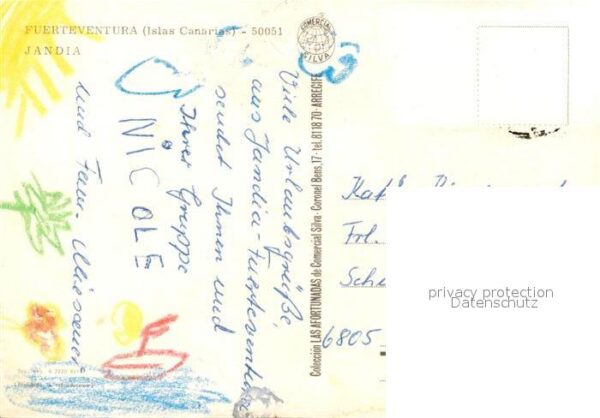 FUERTEVENTURA (Islas Canarias) - 50051
JANDIA
COMERCIAL
SILVA
Viele Urlaubsgrüße
aus Jandia-Fuerteventura
sendet Ihnen und
Ihrer Gruppe
NICOLE
und Fam.
Colección LAS AFORTUNADAS de Comercial Silva - Coronel Bens, 17 - tel. 811870 - ARRECIFE
Kath.
Frl.
6805
privacy protection
Datenschutz